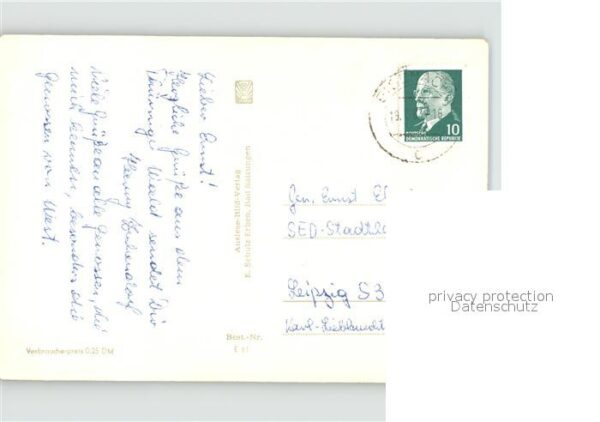 Lieber Ernst!
Herzliche Grüße aus dem
Thüringer Wald sendet Dir
Henny
Viele Grüße an alle Genossen, die
mich kennen, besonders die
Genossen von West.
Auslese-Bild-Verlag
E. Schulz Erben, Bad Salzungen
Best.-Nr.
E 61
Verbraucherpreis 0,25 DM
10
DEMOKRATISCHE REPUBLIK
Gen. Ernst
SED-Stadtl
Leipzig S3
Karl-Liebknecht
privacy protection
Datenschutz